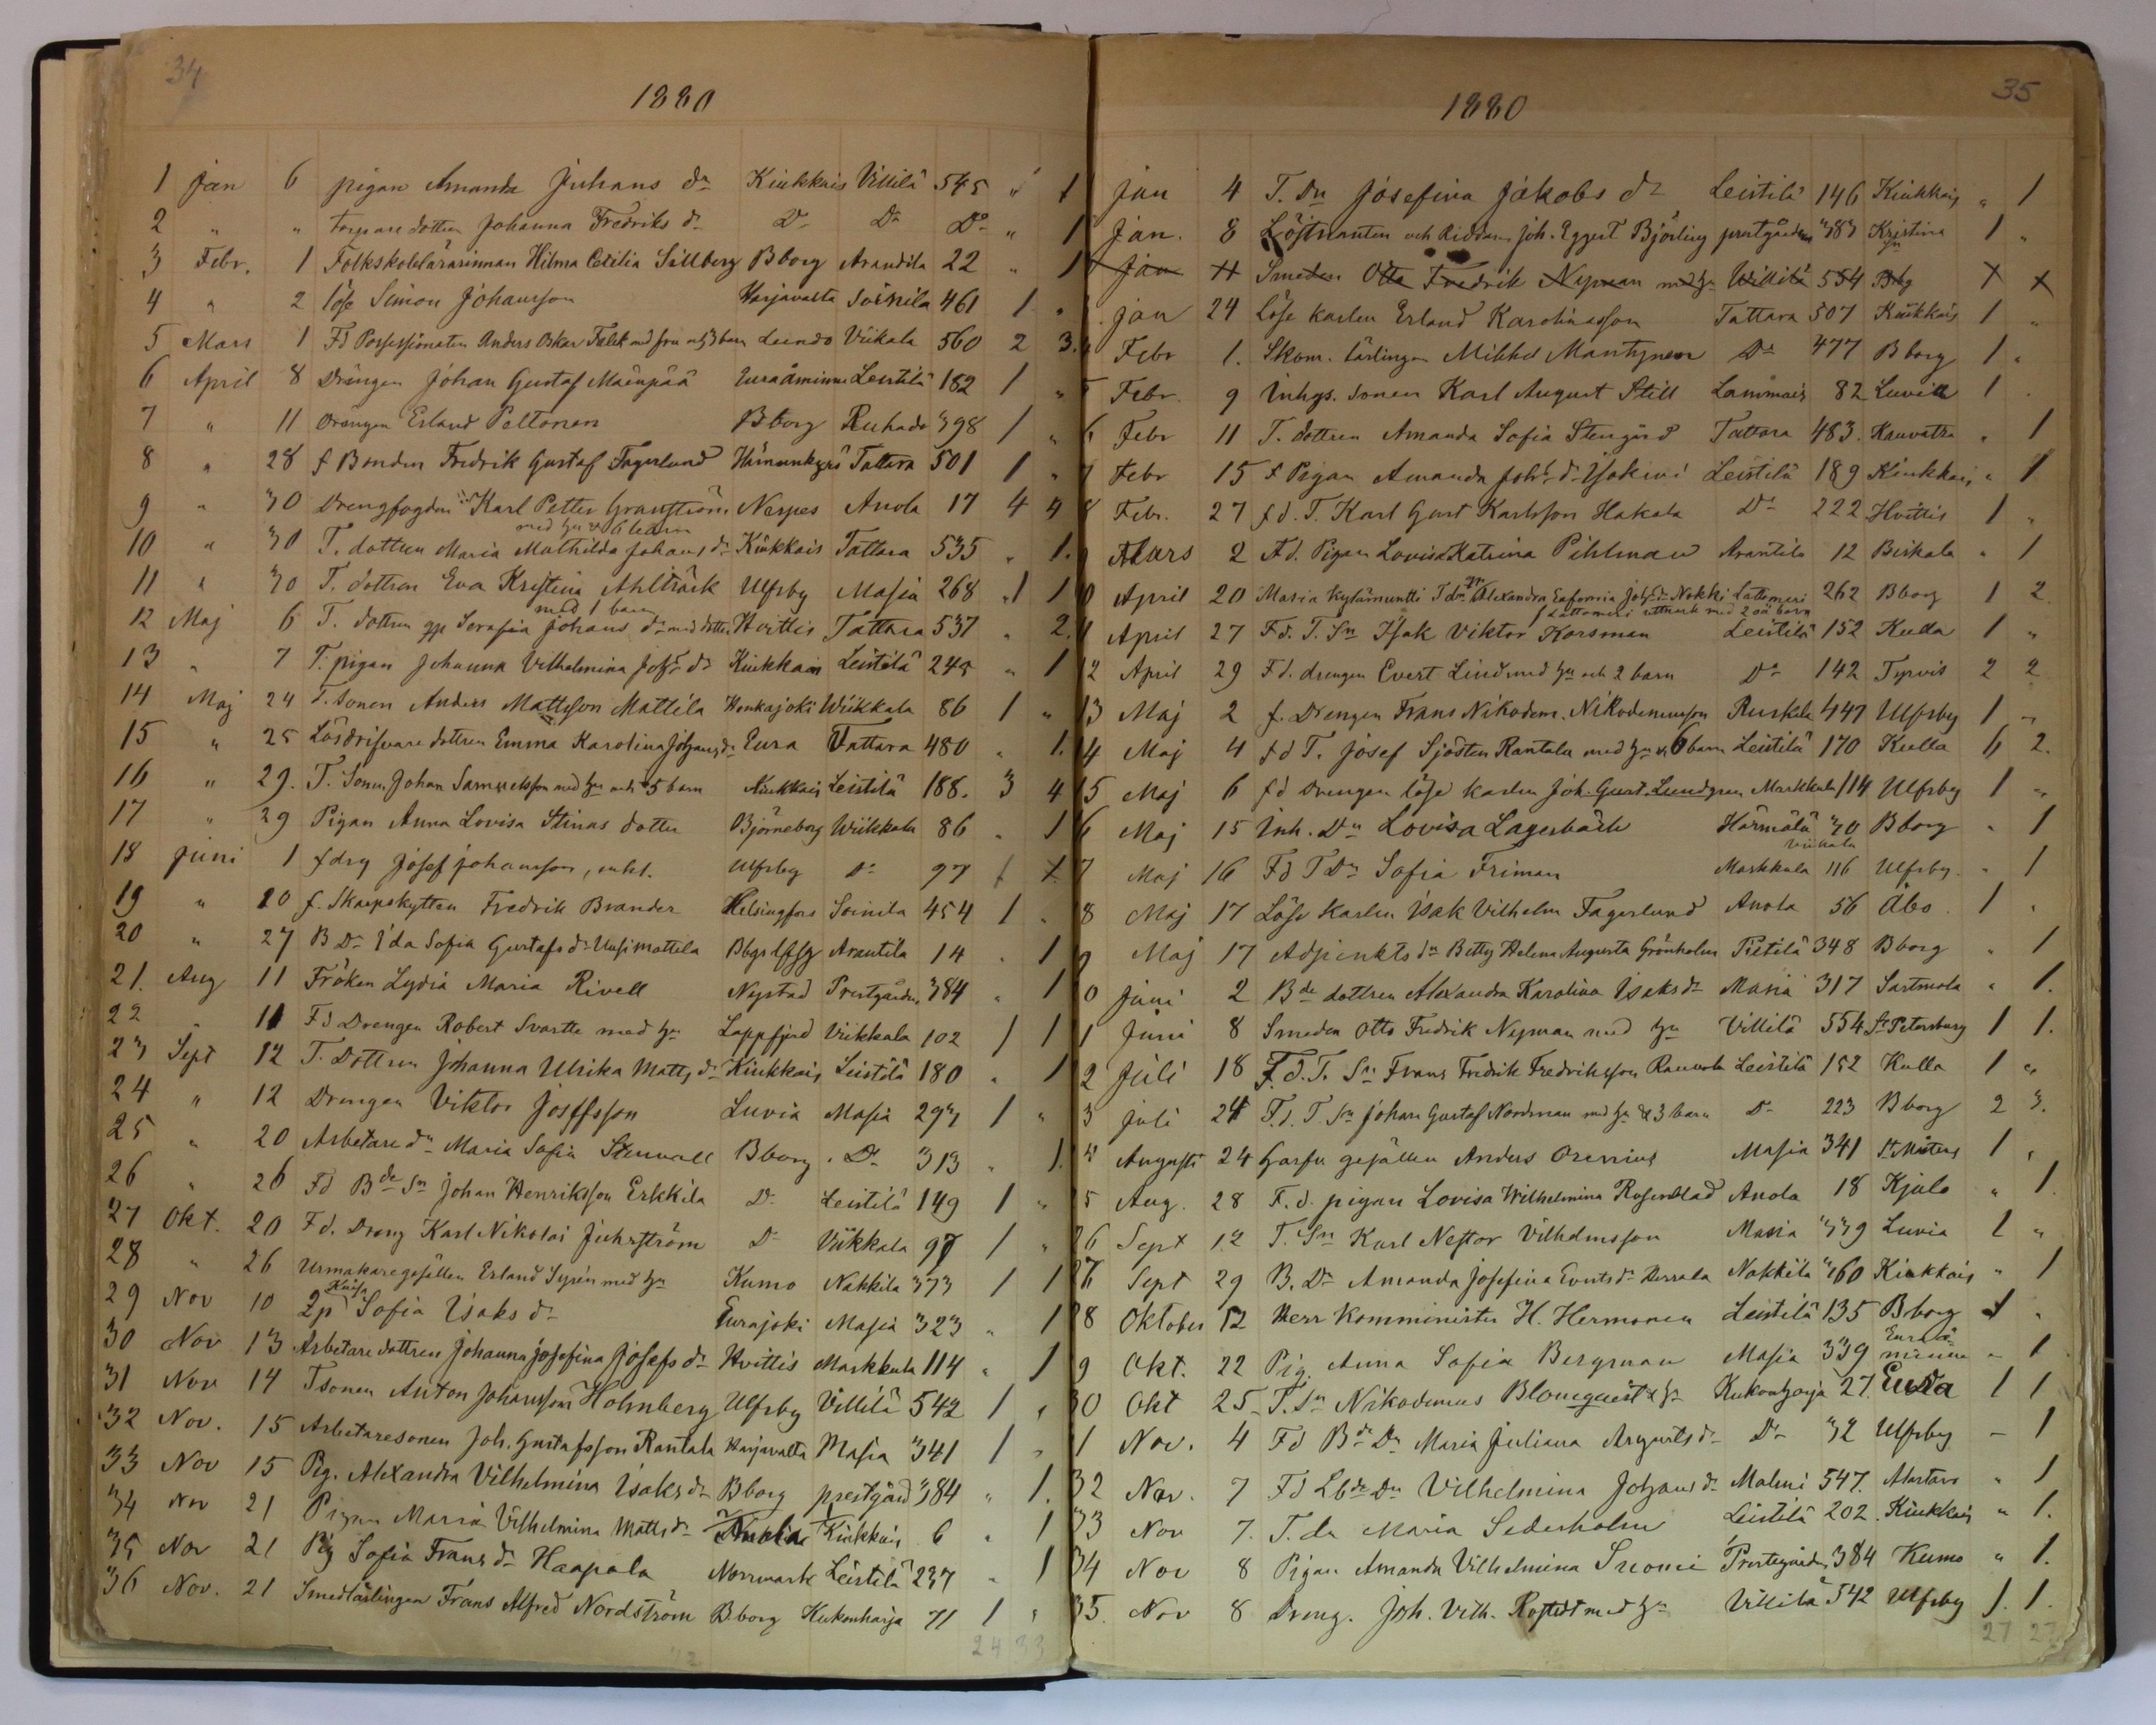 34
1880
1 Jan 6 pigan Amanda Juhans dr Kiukkais Villilä 545 " 1
2 " " torparedottren Johanna Fredriks dr Do Do Do " 1
3 Febr. 1 Folkskolelärarinnan Hilma Cecilia Sillberg Bborg Arandila 22 " 1
4 " 2 löse Simon Johansson Harjavalta Soinila 461 1 "
5 Mars 1 Fd Possessionaten Anders Oskar Falck med fru o 3 barn Lundo Viikala 560 2 3.
6 April 8 Drängen Johan Gustaf Mäenpää Euraåminne Leistilä 182 1 "
7 " 11 Drängen Erland Peltonen Bborg Ruhade 398 1 "
8 " 28 f Bonden Fredrik Gustaf Fagerlund Hämeenkyrö Tattara 501 1 "
9 " 30 Drengfogden Karl Petter Granström Nerpes Anola 17 4 4
med hu & 6 barn
10 " 30 T. dottren Maria Mathilda Johans dr Kiukkais Tattara 535 " 1.
11 " 30 T. dottren Eva Kristina Ahlbäck Ulfsby Masia 268 1 1
med 1 barn
12 Maj 6 T. dottren gp Serafia Johans dr med dotter Hvittis Tattara 537 " 2.
13 " 7 T. pigan Johanna Vilhelmina Johs dr Kiukkais Leistilä 245 " 1
14 Maj 24 T. sonen Anders Mattsson Mattila Honkajoki Wiikkala 86 1 "
15 " 25 Lösdrifvare dottren Emma Karolina Johans dr Eura Tattara 480 " 1.
16 " 29. T. Sonen Johan Samuelsson med hu och 5 barn Kiukkais Leistilä 188. 3 4
17 " 29 Pigan Anna Lovisa Stinas dotter Björneborg Wiikkala 86 " 1
18 Juni 1 f drg Josef Johansson, enkl. Ulfsby Do 97 1
19 " 20 f. Skarpskytten Fredrik Brander Helsingfors Soinila 454 1 "
20 " 27 B Dr Ida Sofia Gustafs dr Uusimattila Bbgs lfsg Arantila 14 " 1
21. Aug 11 Fröken Lydia Maria Rivell Nystad Prestgården 384 " 1
22 " 11 Fd Drengen Robert Svartte med hu Lappfjerd Viikkala 102 1 1
23 Sept 12 T. Dottren Johanna Ulrika Matts dr Kiukkais Leistilä 180 " 1
24 " 12 Drengen Viktor Joseffsson Luvia Masia 293 1 "
25 " 20 Arbetare dr Maria Sofia Stenvall Bborg Do 313 " 1.
26 " 26 Fd Bde Sn Johan Henriksson Erkkila Do Leistilä 149 1 "
27 Okt. 20 Fd. Dreng Karl Nikolai Juhrström Do Viikkala 97 1 "
28 " 26 Urmakaregesällen Erland Syrén med hu Kumo Nakkila 373 1 1
29 Nov 10 Qp Kaisa Sofia Isaks dr Eurajoki Masia 323 " 1
30 Nov 13 Arbetare dottren Johanna Josefina Josefs dr Hvittis Markkula 114 " 1
31 Nov 14 T sonen Anton Johansson Holmberg Ulfsby Villilä 542 1 "
32 Nov. 15 Arbetaresonen Joh. Gustafsson Rantala Harjavalta Masia 341 1 "
33 Nov 15 Pig. Alexandra Vilhelmina Isaks dr Bborg prestgård 384 " 1.
34 Nov 21 Pigan Maria Vilhelmina Matts dr Kiukkais 6 " 1
35 Nov 21 Pig Sofia Frans dr Haapala Norrmark Leistilä 237 " 1
36 Nov. 21 Smedlärlingen Frans Alfred Nordström B.borg Kukonharja 71 1 "
24 33
35
1880
Jan 4 T. Dr Josefina Jakobs dr Leistilä 146 Kiukkais " 1
Jan. 8 Löjtnanten och Riddaren Joh. Eggert Björling prestgården 383 Kristina 1 "
Jan 11 Smeden Otto Fredrik Nyman med hu Willilä 554 Bbg
Jan 24 Löse karlen Erland Karolinasson Tattara 507 Kiukkais 1 "
4 Febr 1. Skom. lärlingen Mikkel Mantynen Do 477 Bborg 1 "
5 Febr. 9 Inhys. sonen Karl August Still Lammais 82 Luvia 1
6 Febr 11 T. dottren Amanda Sofia Stengård Tattara 483. Kauvatsa " 1
7 Febr 15 f Pigan Amanda Johs dr Isokivi Leistilä 189 Kiukkais " 1
8 Febr. 27 f d. T. Karl Gust Karlsson Hakala Do 222 Hvittis 1 "
9 Mars 2 Fd. Pigan Lovisa Katrina Pihlman Arantila 12 Birkala " 1
10 April 20 Maria Kylämuntti T dr Alexandra Eufemia Johs dr Nokki Lattomeri 262 Bborg 1 2
f Lattomeri attmark med 2 oä barn
11 April 27 Fd. T. Sn Isak Viktor Horsman Leistilä 152 Kulla 1 "
12 April 29 Fd. drengen Evert Lind med hu och 2 barn Do 142 Tyrvis 2 2
13 Maj 2 f. Drengen Frans Nikodem. Nikodemusson Ruskila 447 Ulfsby 1 "
14 Maj 4 f d T. Josef Sjösten Rantala med hu o. 6 barn Leistilä 170 Kulla 6 2.
15 Maj 6 f d Drengen löse karlen Joh. Gust. Lundgren Markkula 114 Ulfsby 1 "
16 Maj 15 Inh. Dr Lovisa Lagerbäck Härmälä 30 Bborg " 1
Viikala
17 Maj 16 Fd T Dr Sofia Friman Markkula 116 Ulfsby. " 1
18 Maj 17 Löse Karlen Isak Vilhelm Fagerlund Anola 56 Åbo 1 "
9 Maj 17 Adjunkts dr Betty Helena Augusta Grönholm Pietilä 348 Bborg " 1
0 Juni 2 Bde dottren Alexandra Karolina Isaks dr Masia 317 Sastmola " 1.
1 Juni 8 Smeden Otto Fredrik Nyman med hu Villilä 554 St Petersburg 1 1.
2 Juli 18 F. d. T. Sn Frans Fredrik Fredriksson Rauvola Leistilä 152 Kulla 1 "
3 Juli 24 F. d. T. Sn Johan Gustaf Nordman med hu & 3 barn Do 223 Bborg 2 3.
4 Augusti 24 Garfv. gesällen Anders Orenius Masia 341 St Mårtens 1 "
5 Aug. 28 F. d. pigan Lovisa Wilhelmina Rosenblad Anola 18 Kjulo " 1.
26 Sept 12 T. Sn Karl Nestor Vilhelmsson Masia 339 Luvia 1 "
27 Sept 29 B. Dr Amanda Josefina Everts dr Herrala Nakkila 360 Kiukkais " 1
28 Oktober 12 Herr Komminister H. Hermonen Leistilä 135 Bborg 1 "
9 Okt. 22 Pig. Anna Sofia Bergman Masia 339 Euraåminne " 1
30 Okt 25 T. Sn Nikodemus Blomquist & hu Kukonharja 27. Eura 1 1
1 Nov. 4 Fd Bde Dr Maria Juliana Argusts dr Do 32 Ulfsby - 1
32 Nov. 7 Fd Lbde Dr Vilhelmina Johans dr Malmi 547. Alastaro " 1
33 Nov 7. T. dr Maria Sederholm Leistilä 202. Kiukkais " 1.
34 Nov 8 Pigan Amanda Vilhelmina Suomi Prestegården 384 Kumo " 1.
35. Nov 8 Dreng. Joh. Vilh. Rostedt med hu Villilä 542 Ulfsby 1. 1.
27 27